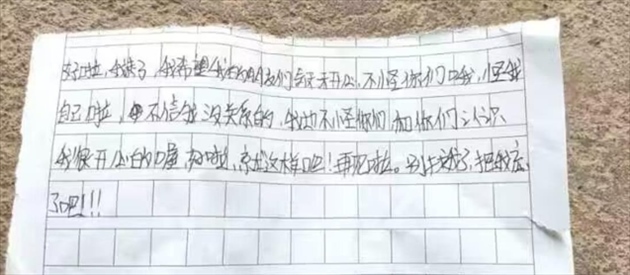 好啦，我候了，我希望我的朋友们每天开心，不怪你们口我，怪我
自己啦，不信我没关系的，我也不怪你们，和你们认识
我很开心的嘿 好啦，就这样吧！再见啦。别找我了，把我忘
了吧!!!